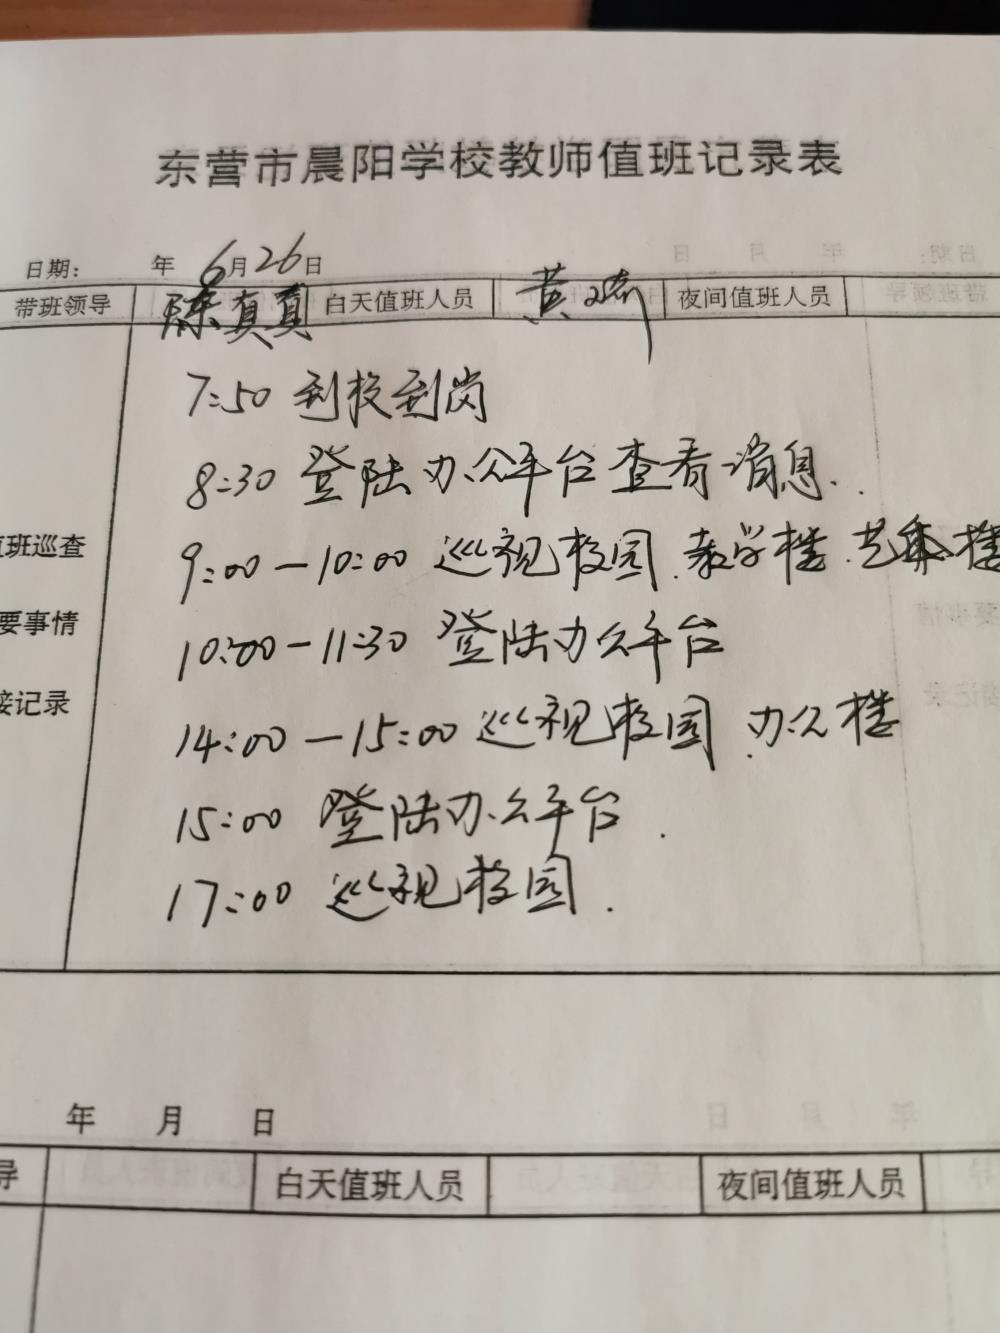 东营市晨阳学校教师值班记录表
日期: 年 6月26日
带班领导 陈真真 白天值班人员 黄 夜间值班人员
7:50 到校到岗
8:30 登陆办公平台查看消息.
9:00-10:00 巡视校园.教学楼.艺术楼
10:00-11:30 登陆办公平台
14:00-15:00 巡视校园.办公楼
15:00 登陆办公平台.
17:00 巡视校园.
班巡查
要事情
接记录
年 月 日
导 白天值班人员 夜间值班人员